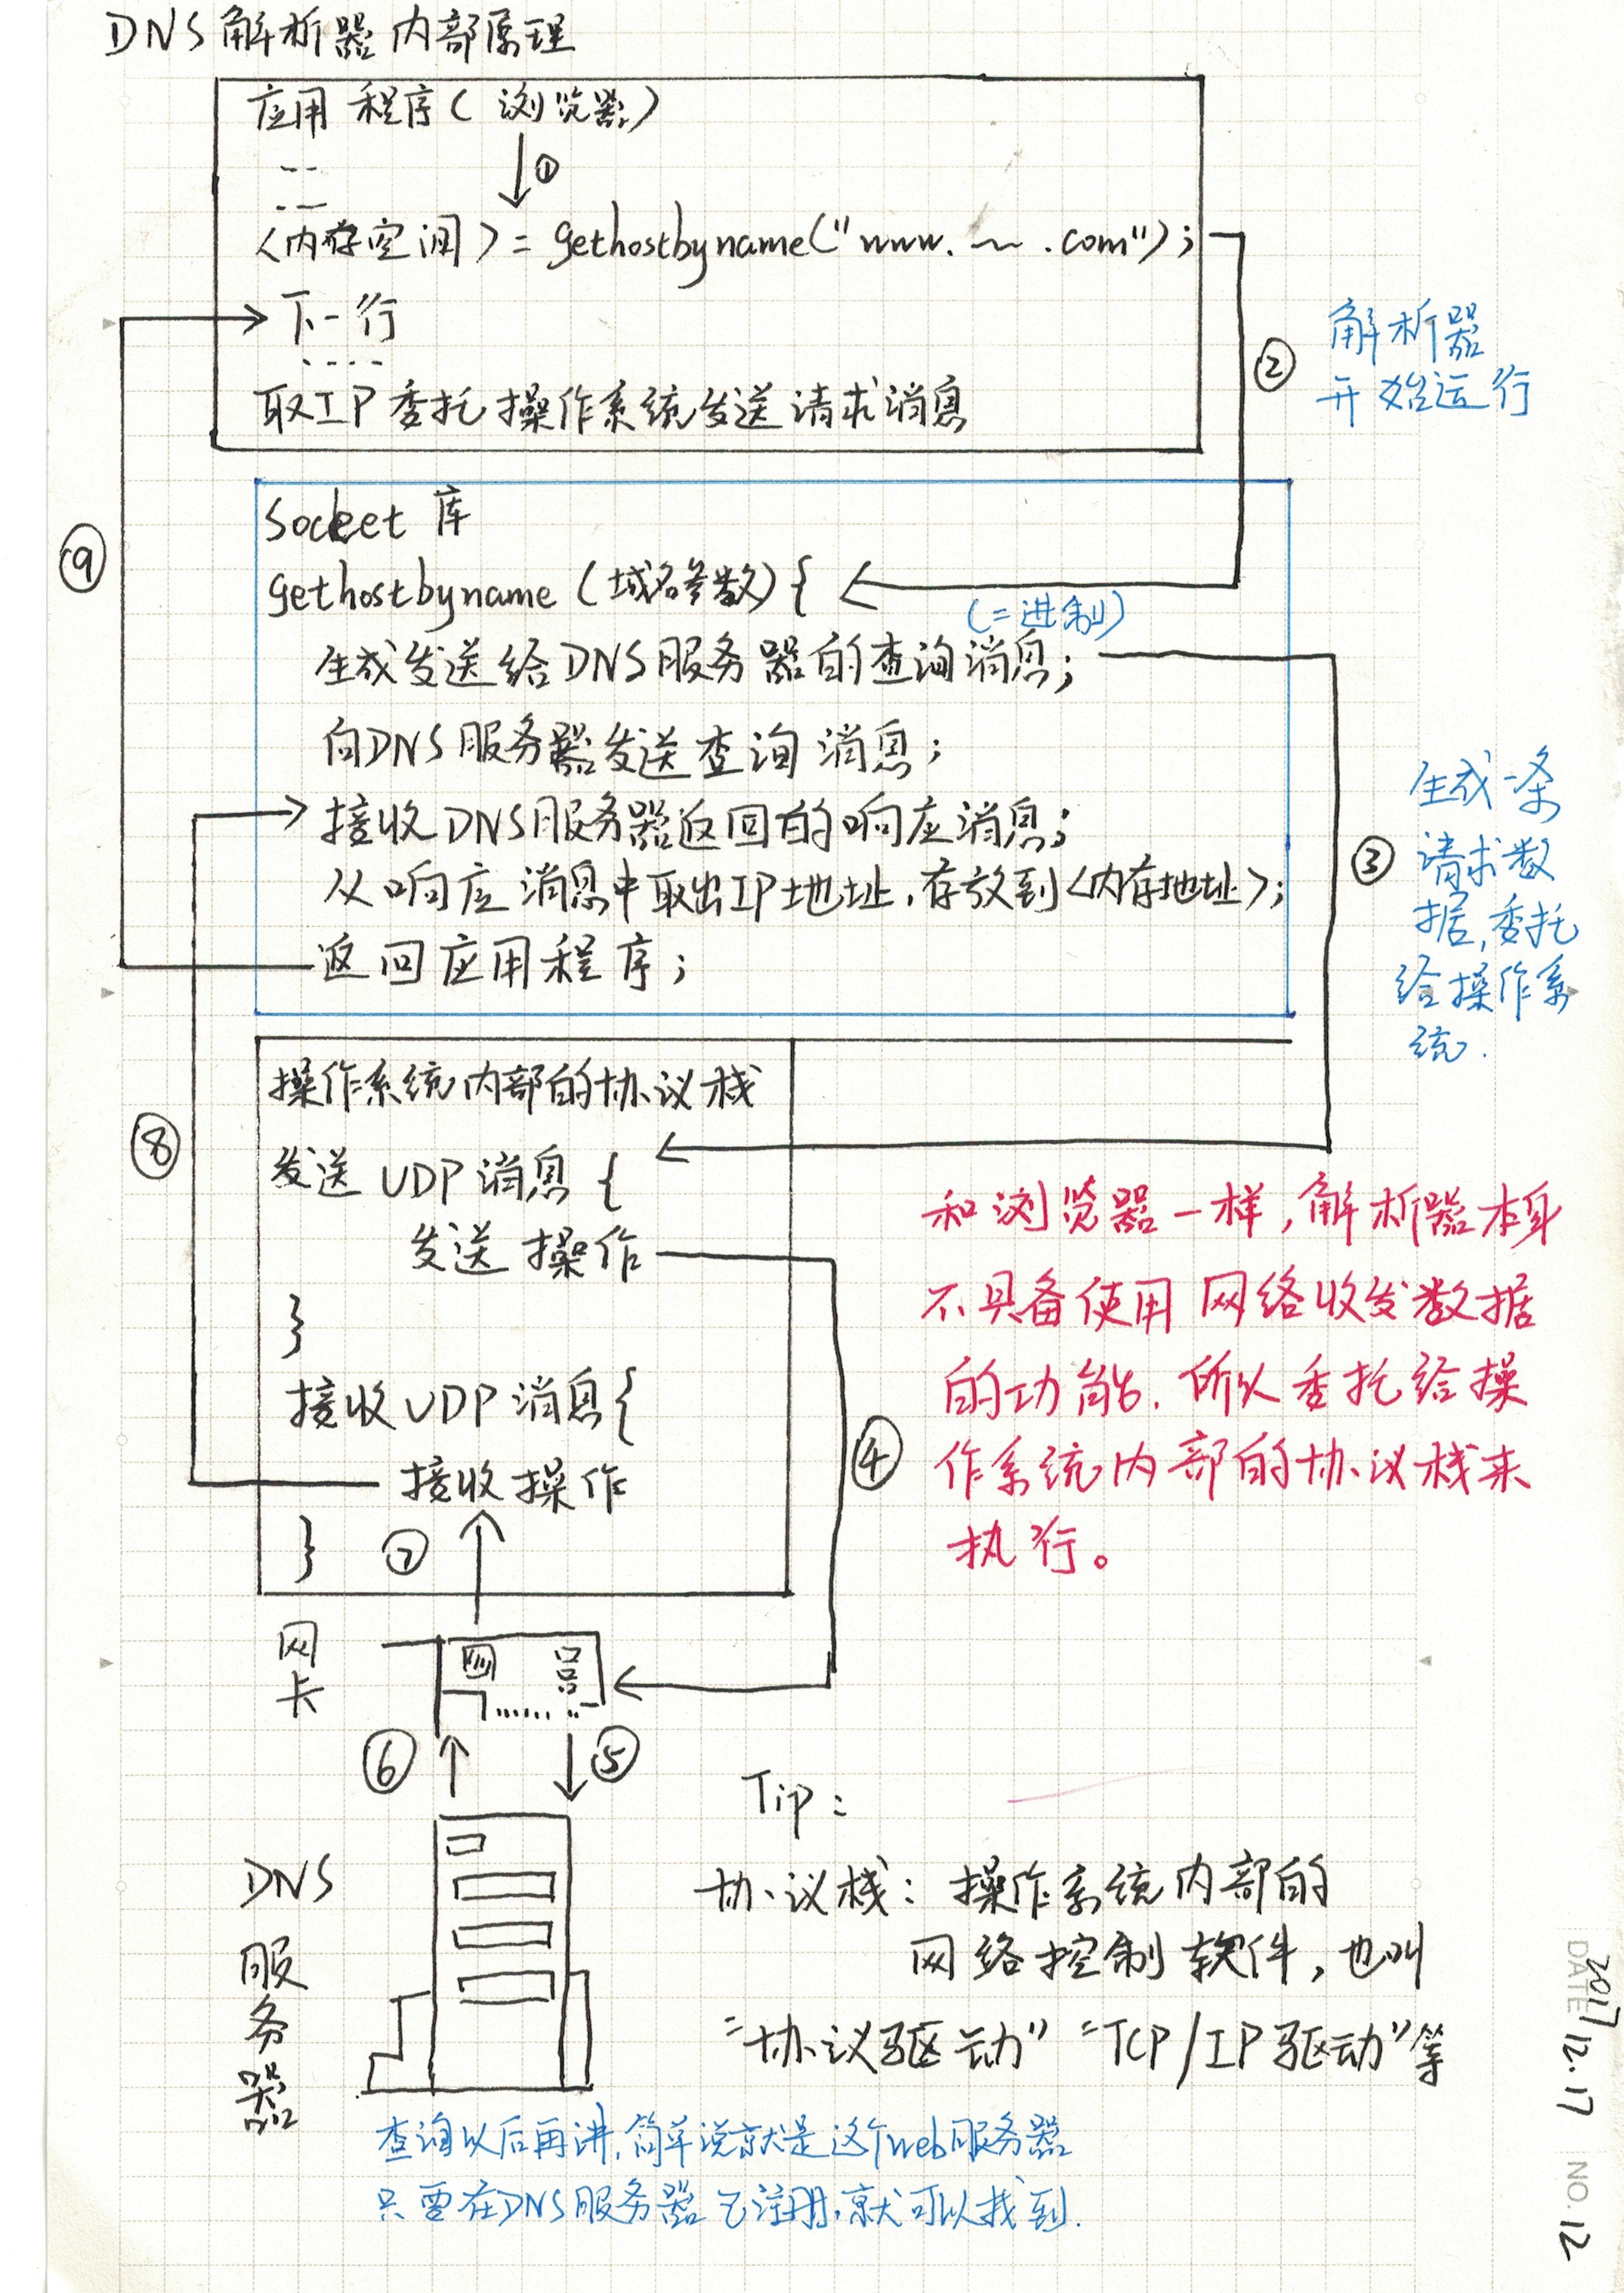 DNS解析器内部原理
应用程序(浏览器)
①
<内存空间>=gethostbyname("www.~.com");
下一行
....
取IP委托操作系统发送请求消息
②
解析器
开始运行
⑨
Socket 库
gethostbyname(域名参数){
(二进制)
生成发送给DNS服务器的查询消息;
向DNS服务器发送查询消息;
接收DNS服务器返回的响应消息;
从响应消息中取出IP地址,存放到<内存地址>;
返回应用程序;
③
生成一条
请求数
据,委托
给操作系
统.
操作系统内部的协议栈
⑧
发送UDP消息{
发送操作
}
接收UDP消息{
接收操作
}
⑦
④
和浏览器一样,解析器本身
不具备使用网络收发数据
的功能.所以委托给操
作系统内部的协议栈来
执行。
网
卡
⑥
⑤
DNS
服
务
器
Tip:
协议栈:操作系统内部的
网络控制软件,也叫
"协议驱动""TCP/IP驱动"等
查询以后再讲,简单说就是这个web服务器
只要在DNS服务器已注册,就可以找到.
DATE 2017 12.17 NO. 12